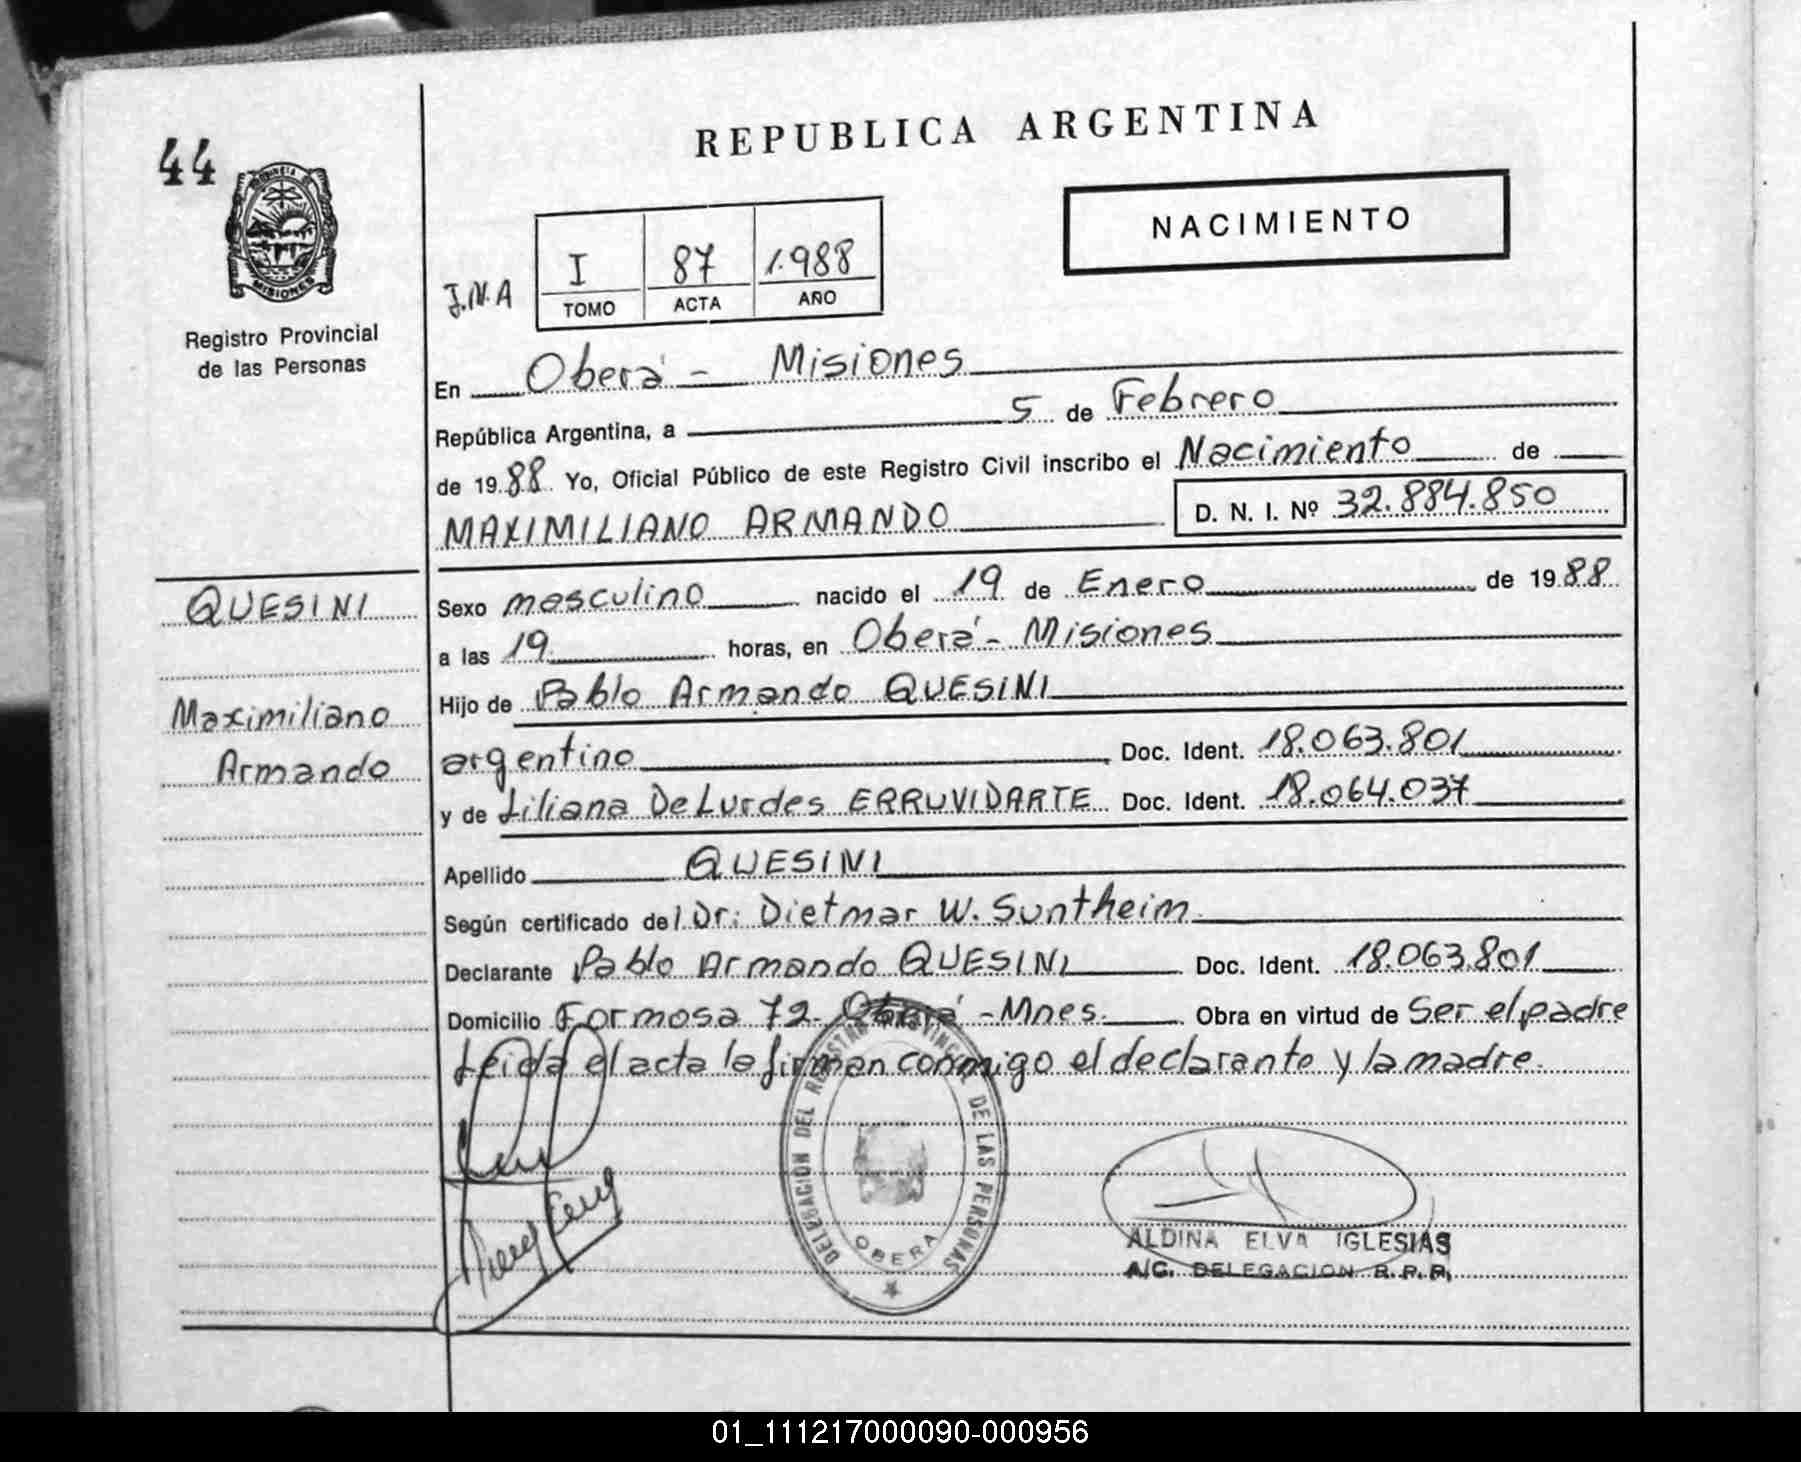 44
REPUBLICA ARGENTINA
PROVINCIA DE
MISIONES
Registro Provincial
de las Personas
NACIMIENTO
J.N.A
I 87 1.988
TOMO ACTA AÑO
En Oberá - Misiones
República Argentina, a 5 de Febrero
de 1988 Yo, Oficial Público de este Registro Civil inscribo el Nacimiento de
MAXIMILIANO ARMANDO D. N. I. Nº 32.884.850
QUESINI
Maximiliano
Armando
Sexo masculino nacido el 19 de Enero de 1988
a las 19 horas, en Oberá - Misiones
Hijo de Pablo Armando QUESINI
argentino Doc. Ident. 18.063.801
y de Liliana De Lurdes ERRUVIDARTE Doc. Ident. 18.064.037
Apellido QUESINI
Según certificado del Dr: Dietmar W. Suntheim
Declarante Pablo Armando QUESINI Doc. Ident. 18.063.801
Domicilio Formosa 72 - Oberá - Mnes. Obra en virtud de Ser el padre
Leida el acta la firman conmigo el declarante y la madre.
DELEGACION DEL REGISTRO PROVINCIAL DE LAS PERSONAS
OBERA
ALDINA ELVA IGLESIAS
A/C. DELEGACION R. P. P.
01_111217000090-000956